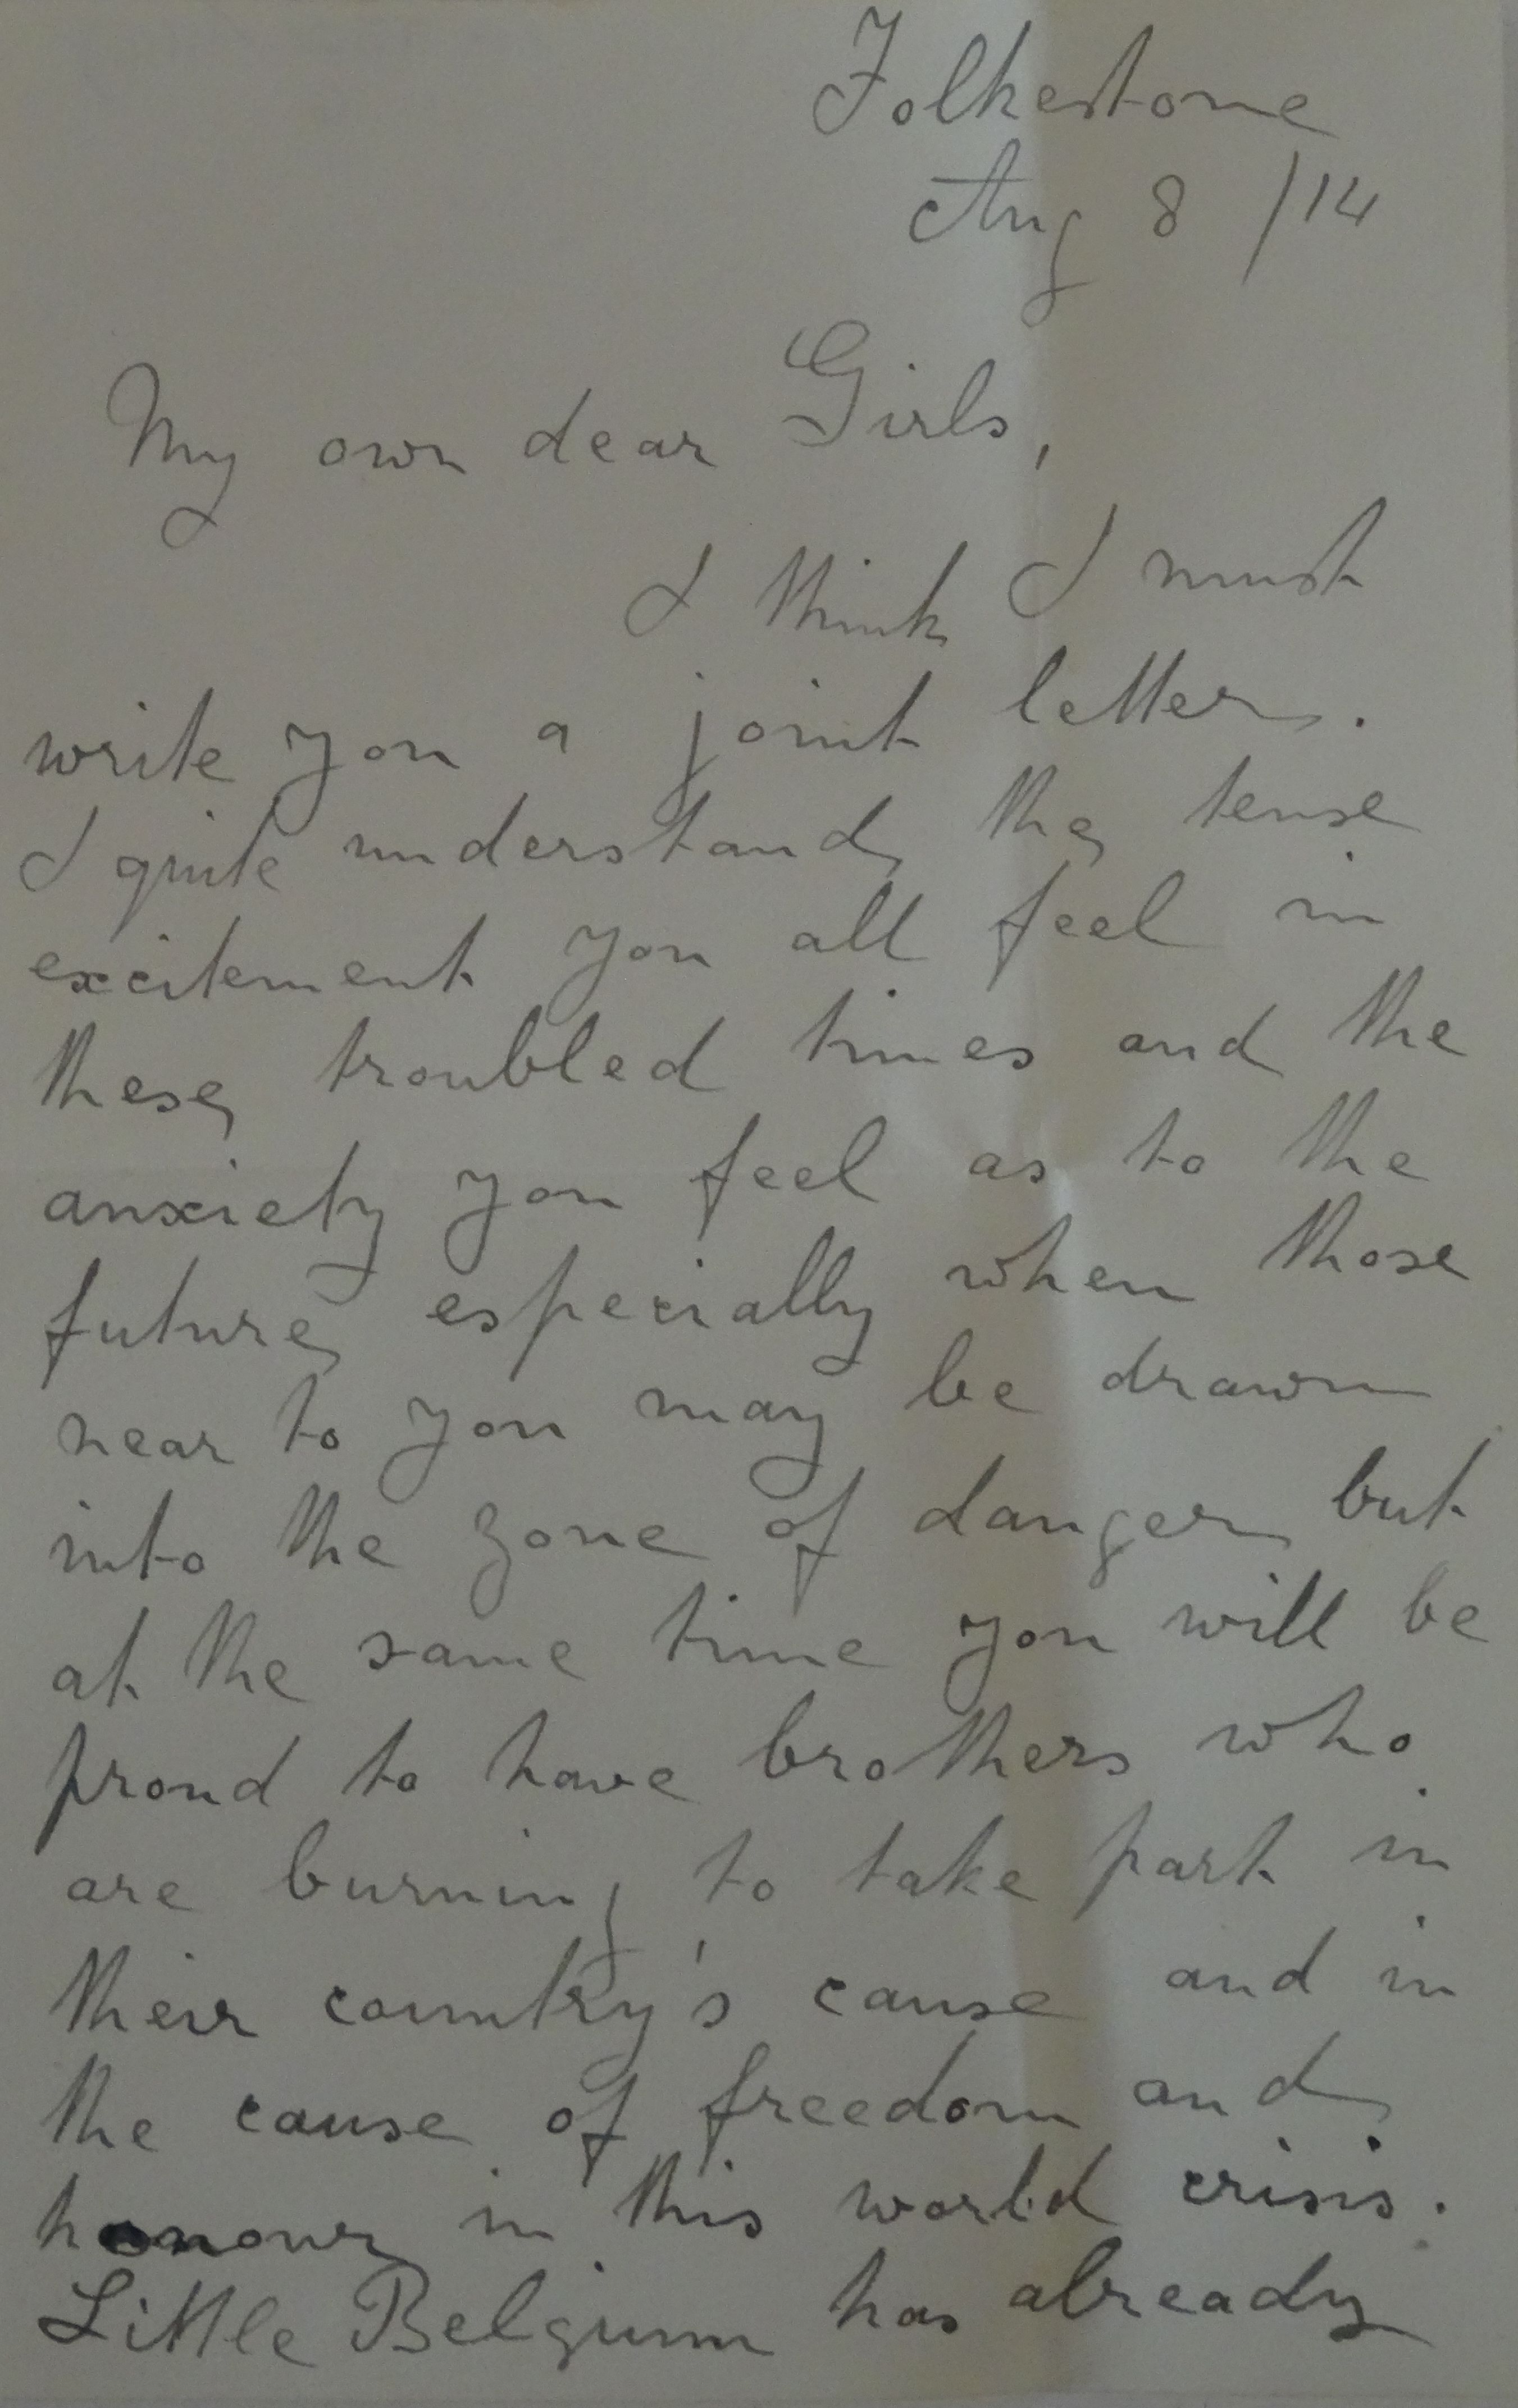 Folkestone
Aug 8 /14
My own dear Girls,
I think I must
write you a joint letter.
I quite understand the tense
excitement you all feel in
these troubled times and the
anxiety you feel as to the
future especially when those
near to you may be drawn
into the zone of danger but
at the same time you will be
proud to have brothers who
are burning to take part in
their country's cause and in
the cause of freedom and
honour in this world crisis.
Little Belgium has already